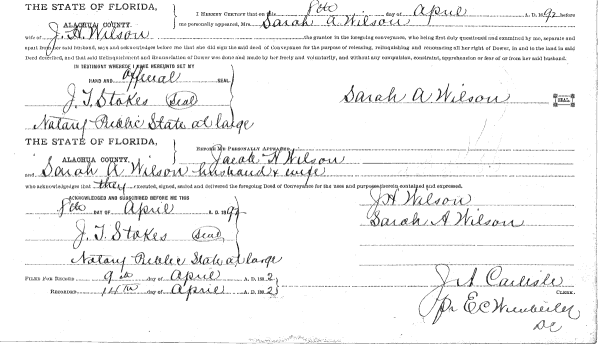 THE STATE OF FLORIDA, I HEREBY CERTIFY that on this 8th day of April A. D. 1892 before
ALACHUA COUNTY. me personally appeared, Mrs. Sarah A Wilson
wife of J. H. Wilson the grantor in the foregoing conveyance, who being first duly questioned and examined by me, separate and
apart from her said husband, says and acknowledges before me that she did sign the said deed of Conveyance for the purpose of releasing, relinquishing and renouncing all her right of Dower, in and to the land in said
Deed described, and that said Relinquishment and Renunciation of Dower was done and made by her freely and voluntarily, and without any compulsion, constraint, apprehension or fear of or from her said husband.
IN TESTIMONY WHEREOF I HAVE HEREUNTO SET MY
HAND AND official SEAL
J. T. Stokes Seal Sarah A Wilson SEAL.
Notary Public State at large
THE STATE OF FLORIDA, BEFORE ME PERSONALLY APPEARED
ALACHUA COUNTY. Jacob H Wilson
and Sarah A Wilson husband & wife
who acknowledges that they executed, signed, sealed and delivered the foregoing Deed of Conveyance for the uses and purposes therein contained and expressed.
ACKNOWLEDGED AND SUBSCRIBED BEFORE ME THIS J H Wilson
8th DAY OF April A. D. 1892 Sarah A Wilson
J. T. Stokes Seal
Notary Public State at large
FILED FOR RECORD 9th day of April A. D. 1892 J. A. Carlisle
RECORDED 14th day of April A. D. 1892 CLERK.
Pr E C Wimberley
DC